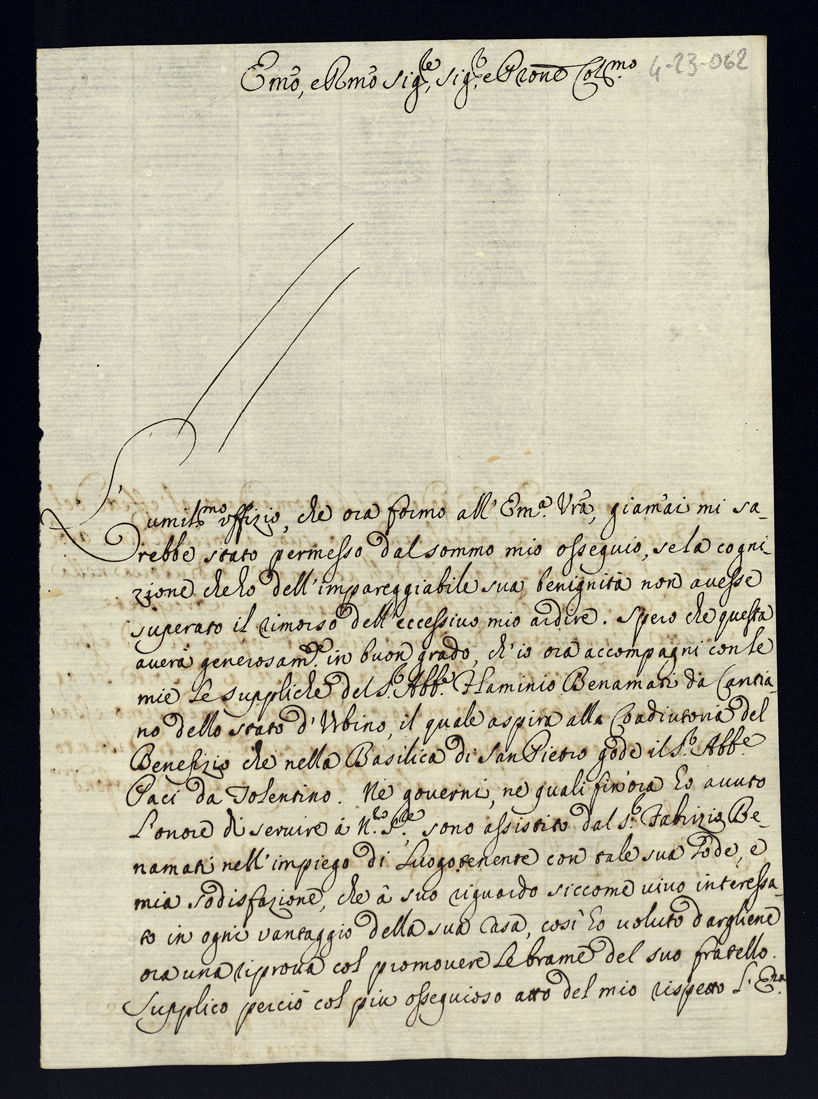 Emo, e Rmo Sigre, Sigr e Prone Colmo 4-23-062
L'umilmo offizio, che ora formo all'Ema. Vra, giamai mi sa-
rebbe stato permesso dal sommo mio ossequio, se la cogni-
zione che ho dell'impareggiabile sua benignità non avesse
superato il rimorso dell'eccessivo mio ardire. Spero che questa
averà generosamte. in buon grado, ch'io ora accompagni con le
mie le suppliche del Sr. Abbe. Flaminio Benamati da Cantia-
no dello stato d'Urbino, il quale aspira alla Coadiutoria del
Benefizio che nella Basilica di San Pietro gode il Sr. Abbe
Paci da Tolentino. Ne governi, ne quali fin'ora ho avuto
l'onore di servire à N. Sre, sono assistito dal Sr. Fabrizio Be-
namati nell'impiego di Luogotenente con tale sua lode, e
mia sodisfazione, che à suo riguardo siccome vivo interessa-
to in ogni vantaggio della sua Casa, così ho voluto dargliene
ora una riprova col promovere le brame del suo fratello.
Supplico perciò col più ossequioso atto del mio rispetto l'Eza.